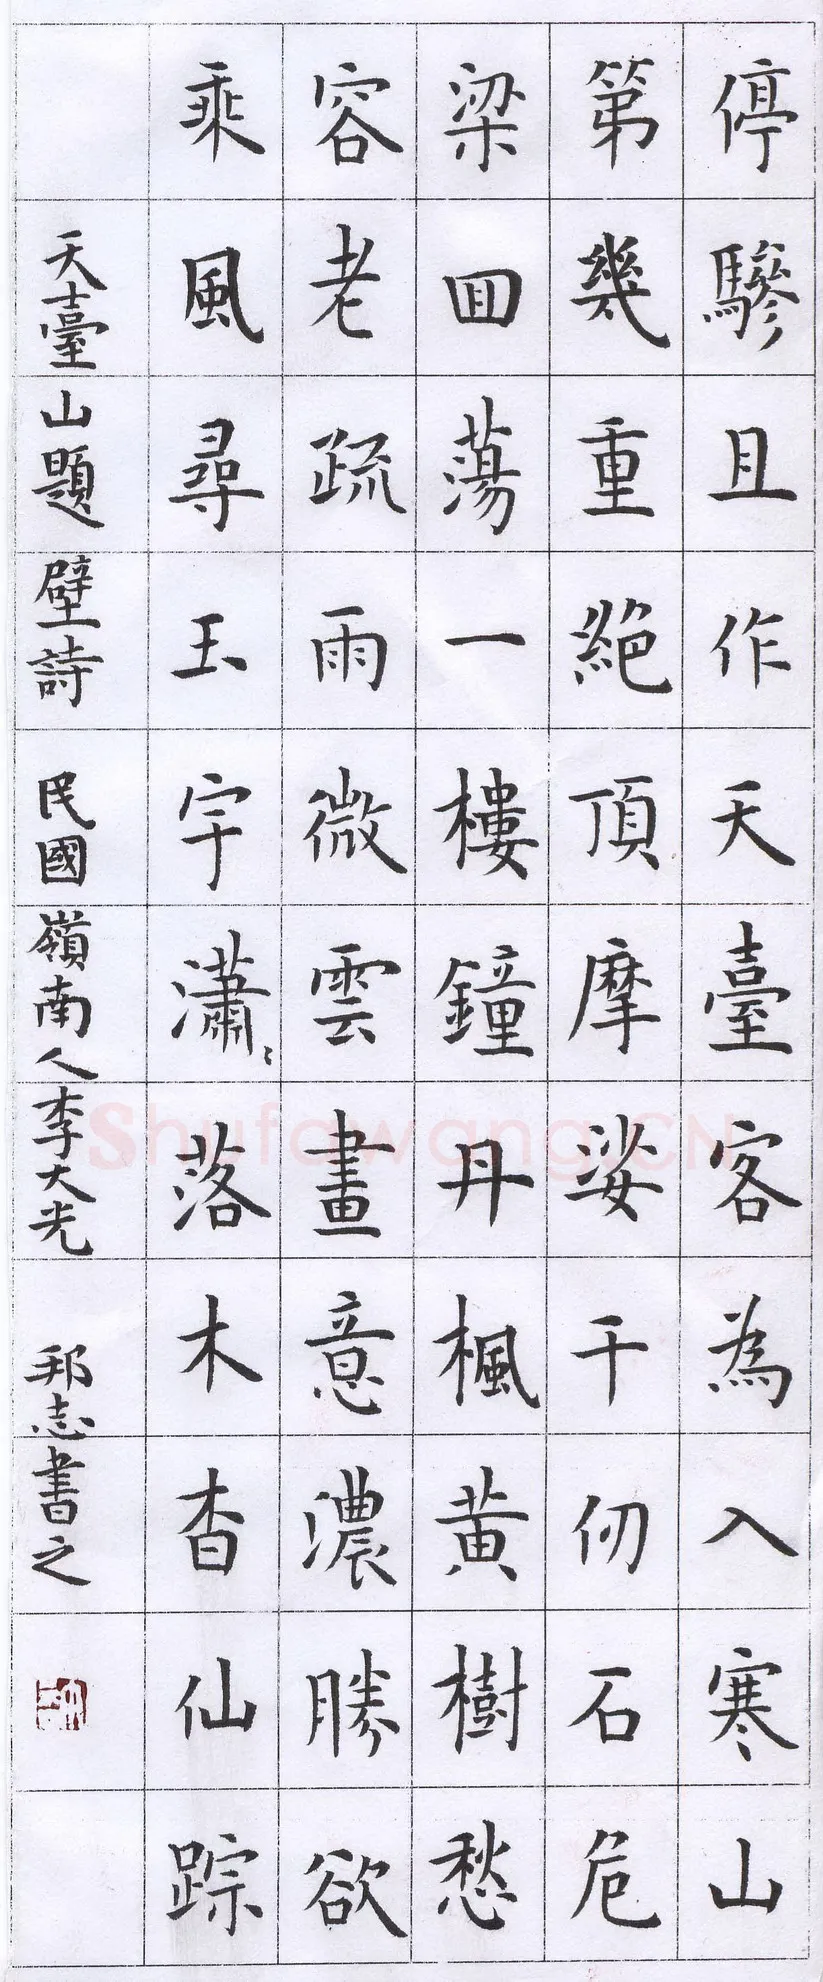 停驂且作天臺客為入寒山
第幾重絕頂摩娑千仞石危
梁回蕩一樓鐘丹楓黄樹愁
容老疏雨微雲畫意濃勝欲
乘風尋玉宇瀟〻落木杳仙踪
天臺山題壁詩 民國嶺南人李大光 邦志書之
Shufawang.CN